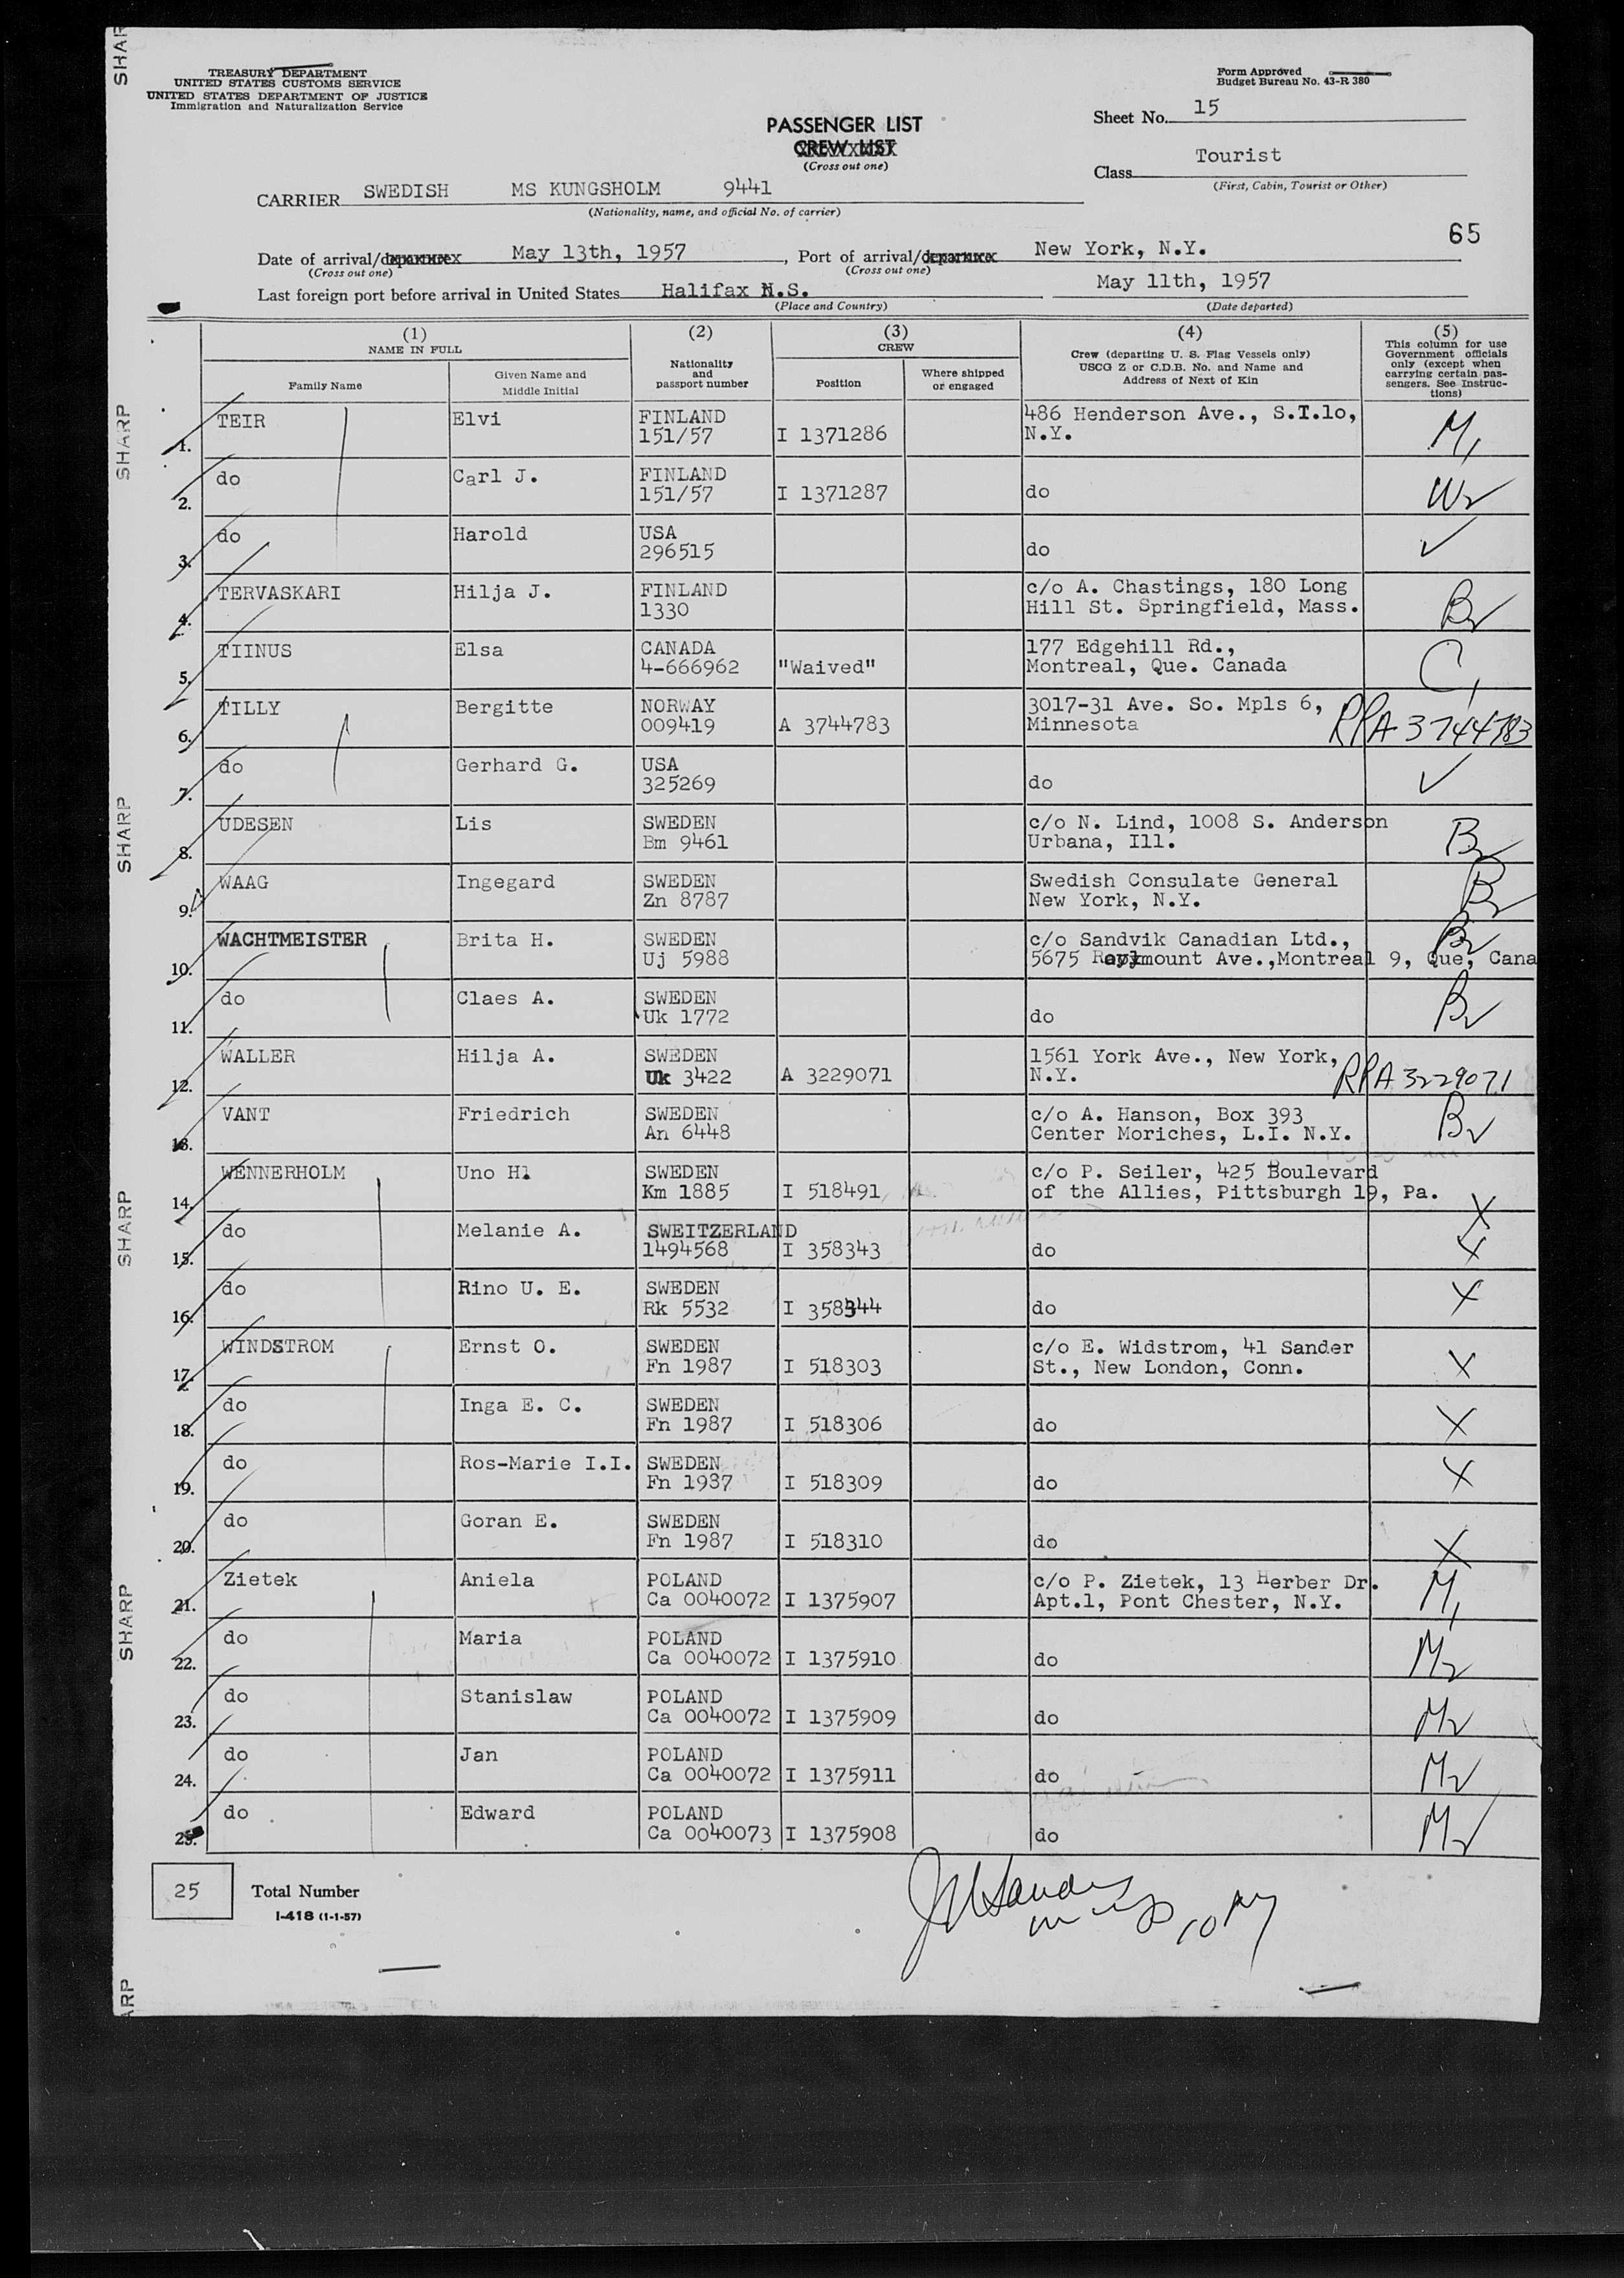 TREASURY DEPARTMENT
UNITED STATES CUSTOMS SERVICE
UNITED STATES DEPARTMENT OF JUSTICE
Immigration and Naturalization Service
Form Approved
Budget Bureau No. 43-R 380
PASSENGER LIST
CREW LIST
(Cross out one)
Sheet No. 15
Class Tourist
(First, Cabin, Tourist or Other)
CARRIER SWEDISH MS KUNGSHOLM 9441
(Nationality, name, and official No. of carrier)
65
Date of arrival/departure May 13th, 1957, Port of arrival/departure New York, N.Y.
(Cross out one) (Cross out one)
Last foreign port before arrival in United States Halifax N.S. May 11th, 1957
(Place and Country) (Date departed)
(1) NAME IN FULL
Family Name
Given Name and Middle Initial
(2) Nationality and passport number
(3) CREW
Position
Where shipped or engaged
(4) Crew (departing U. S. Flag Vessels only) USCG Z or C.D.B. No. and Name and Address of Next of Kin
(5) This column for use Government officials only (except when carrying certain passengers. See Instructions)
1. TEIR Elvi FINLAND 151/57 I 1371286 486 Henderson Ave., S.I.lo, N.Y. M1
2. do Carl J. FINLAND 151/57 I 1371287 do
3. do Harold USA 296515 do ✓
4. TERVASKARI Hilja J. FINLAND 1330 c/o A. Chastings, 180 Long Hill St. Springfield, Mass. B
5. TIINUS Elsa CANADA 4-666962 "Waived" 177 Edgehill Rd., Montreal, Que. Canada C1
6. TILLY Bergitte NORWAY 009419 A 3744783 3017-31 Ave. So. Mpls 6, Minnesota RPA 3744783
7. do Gerhard G. USA 325269 do ✓
8. UDESEN Lis SWEDEN Bm 9461 c/o N. Lind, 1008 S. Anderson Urbana, Ill. B
9. WAAG Ingegard SWEDEN Zn 8787 Swedish Consulate General New York, N.Y. B
10. WACHTMEISTER Brita H. SWEDEN Uj 5988 c/o Sandvik Canadian Ltd., 5675 Royalmount Ave.,Montreal 9, Que, Cana B
11. do Claes A. SWEDEN Uk 1772 do B
12. WALLER Hilja A. SWEDEN Uk 3422 A 3229071 1561 York Ave., New York, N.Y. RPA 3229071
13. VANT Friedrich SWEDEN An 6448 c/o A. Hanson, Box 393 Center Moriches, L.I. N.Y. B
14. WENNERHOLM Uno H. SWEDEN Km 1885 I 518491 c/o P. Seiler, 425 Boulevard of the Allies, Pittsburgh 19, Pa. X
15. do Melanie A. SWEITZERLAND 1494568 I 358343 do X
16. do Rino U. E. SWEDEN Rk 5532 I 358344 do X
17. WINDSTROM Ernst O. SWEDEN Fn 1987 I 518303 c/o E. Widstrom, 41 Sander St., New London, Conn. X
18. do Inga E. C. SWEDEN Fn 1987 I 518306 do X
19. do Ros-Marie I.I. SWEDEN Fn 1987 I 518309 do X
20. do Goran E. SWEDEN Fn 1987 I 518310 do X
21. Zietek Aniela POLAND Ca 0040072 I 1375907 c/o P. Zietek, 13 Herber Dr. Apt.1, Pont Chester, N.Y. M1
22. do Maria POLAND Ca 0040072 I 1375910 do M2
23. do Stanislaw POLAND Ca 0040072 I 1375909 do M2
24. do Jan POLAND Ca 0040072 I 1375911 do M2
25. do Edward POLAND Ca 0040073 I 1375908 do M2
25 Total Number
I-418 (1-1-57)
SHARP
SHARP
SHARP
SHARP
SHARP